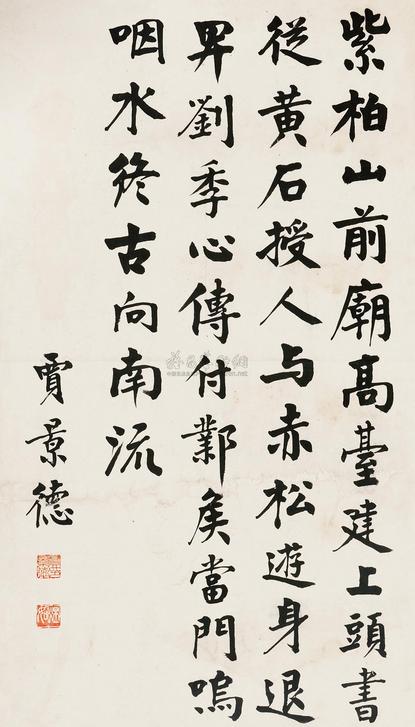 紫柏山前廟高臺建上頭書
從黄石授人与赤松遊身退
畀劉季心傳付酇矦當門嗚
咽水終古向南流
賈景德